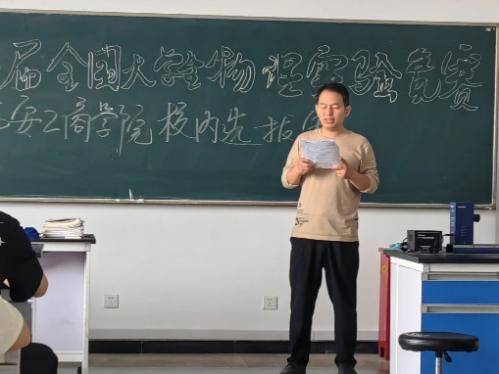 届全国大学生物理实验竞赛
安工商学院校内选拔